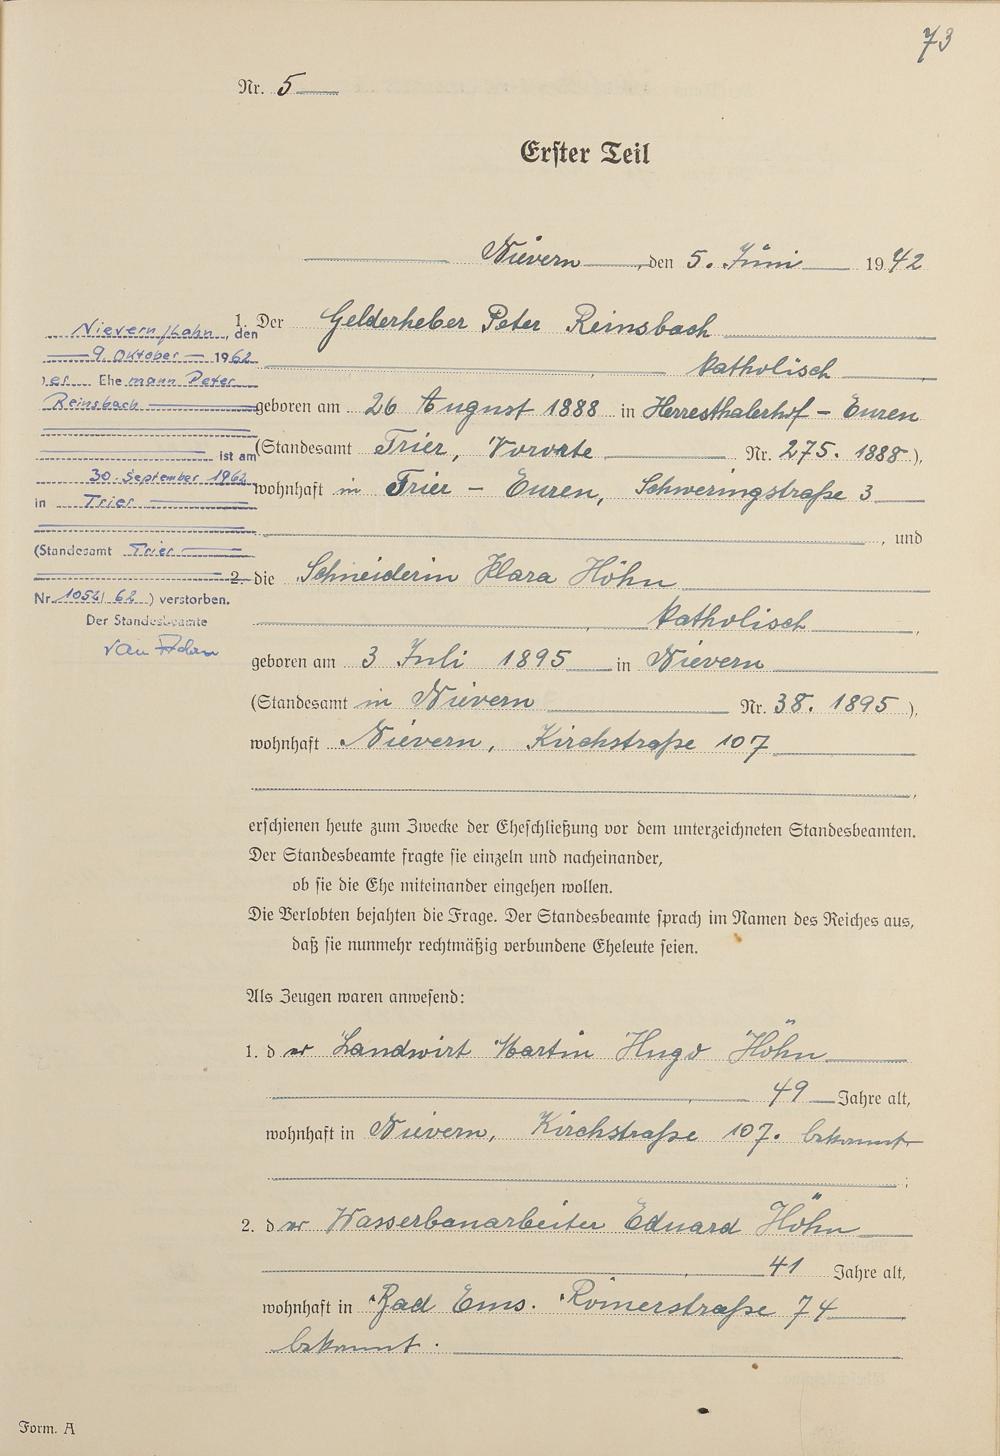 73
Nr. 5
Erster Teil
Nievern, den 5. Juni 1942
1. Der Gelderheber Peter Reinsbach
katholisch,
geboren am 26 August 1888 in Herresthalerhof - Euren
(Standesamt Trier, Vororte Nr. 275. 1888),
wohnhaft in Trier - Euren, Schweringstraße 3
, und
2. die Schneiderin Klara Höhn
, katholisch,
geboren am 3 Juli 1895 in Nievern
(Standesamt in Nievern Nr. 38. 1895),
wohnhaft Nievern, Kirchstraße 107
,
erschienen heute zum Zwecke der Eheschließung vor dem unterzeichneten Standesbeamten.
Der Standesbeamte fragte sie einzeln und nacheinander,
ob sie die Ehe miteinander eingehen wollen.
Die Verlobten bejahten die Frage. Der Standesbeamte sprach im Namen des Reiches aus,
daß sie nunmehr rechtmäßig verbundene Eheleute seien.
Als Zeugen waren anwesend:
1. der Landwirt Martin Hugo Höhn
, 49 Jahre alt,
wohnhaft in Nievern, Kirchstraße 107. bekannt
;
2. der Wasserbauarbeiter Eduard Höhn
, 41 Jahre alt,
wohnhaft in Bad Ems. Römerstraße 74
bekannt.
Nievern/Lahn, den
9. Oktober 1962
er Ehemann Peter
Reinsbach
ist am
30. September 1962
in Trier
(Standesamt Trier
Nr. 1054/62) verstorben.
Der Standesbeamte
Form. A